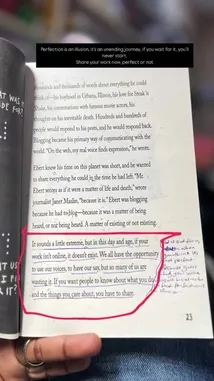 Perfection is an illusion, it's an unending journey, if you wait for it, you'll
never start.
Share your work now, perfect or not
thousands and thousands of words about everything he could
think of—his boyhood in Urbana, Illinois, his love for Steak 'n
Shake, his conversations with famous movie actors, his
thoughts on his inevitable death. Hundreds and hundreds of
people would respond to his posts, and he would respond back.
Blogging became his primary way of communicating with the
world. "On the web, my real voice finds expression," he wrote.
Ebert knew his time on this planet was short, and he wanted
to share everything he could in the time he had left. "Mr.
Ebert writes as if it were a matter of life and death," wrote
journalist Janet Maslin, "because it is." Ebert was blogging
because he had to blog—because it was a matter of being
heard, or not being heard. A matter of existing or not existing.
It sounds a little extreme, but in this day and age, if your
work isn't online, it doesn't exist. We all have the opportunity
to use our voices, to have our say, but so many of us are
wasting it. If you want people to know about what you do
and the things you care about, you have to share.
23